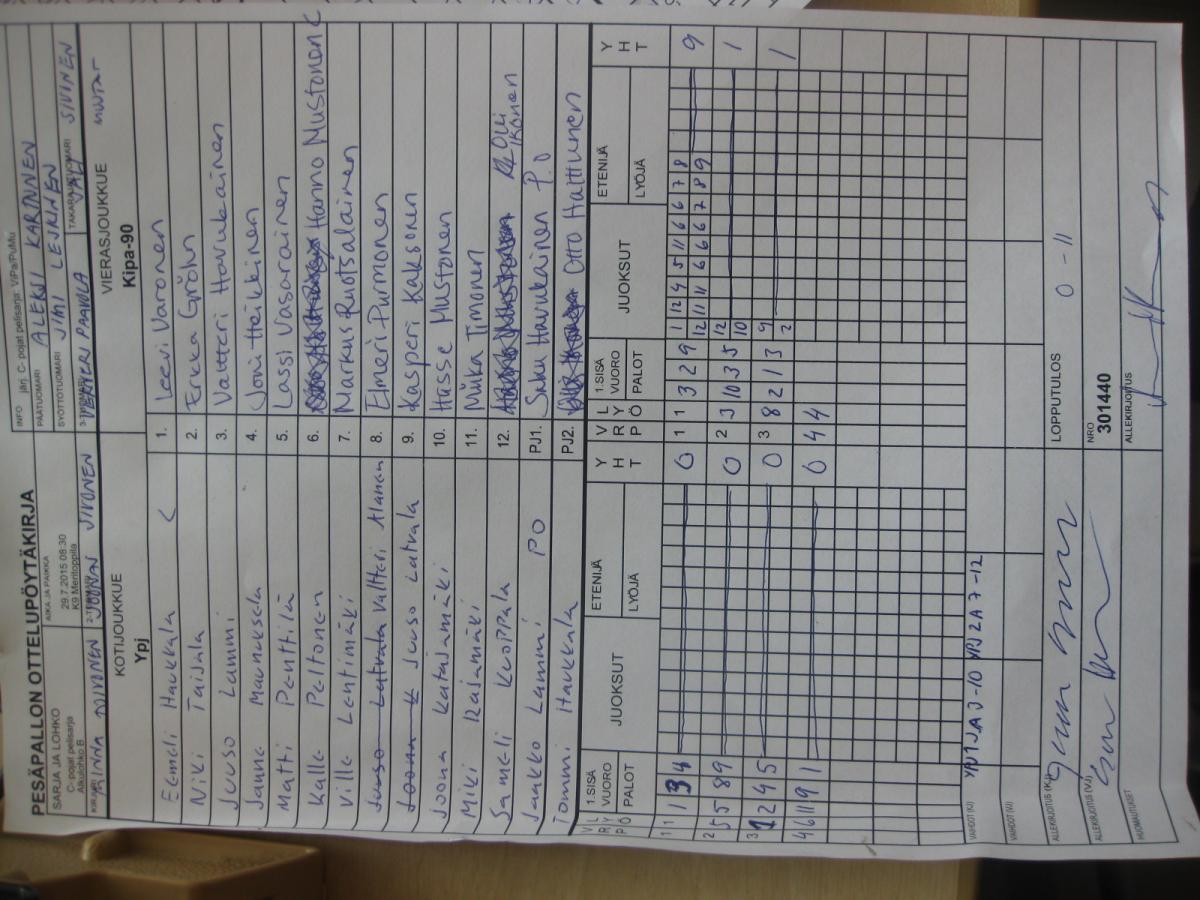 PESÄPALLON OTTELUPÖYTÄKIRJA
SARJA JA LOHKO
C-pojat pelisarja
Alkulohko B
AIKA JA PAIKKA
29.7.2015 08:30
K9 Meritoppila
INFO jän. C-pojat pelisarja: ViPa/PuMu
PÄÄTUOMARI ALEKSI KARINNEN
SYÖTTÖTUOMARI JIMI LESKINEN
TAKARAJATUOMARI SIVINEN
KIRJURI MINNA
JOONAN SIVONEN
KOTIJOUKKUE
Ypj
VIERASJOUKKUE
Kipa-90
Eemeli Haukkala <
Niki Taisala
Juuso Lammi
Janne Maunuksela
Matti Penttilä
Kalle Peltonen
Ville Lentimäki
Juuso Latvala Valtteri Alanen
Joona K Juuso Latvala
Joona Katajamäki
Miki Rajamäki
Sameli Kuoppala
Jaakko Lammi PO
Tommi Haukkala
1. Leevi Varonen
2. Eerka Gröhn
3. Valtteri Havukainen
4. Joni Heikkinen
5. Lassi Vasarainen
6. Hanno Mustonen C
7. Markus Ruotsalainen
8. Elmeri Purmonen
9. Kasperi Kaksonen
10. Hasse Mustonen
11. Miika Timonen
12. Olli Ikonen
PJ1. Saku Havukainen P.O
PJ2. Otto Halttunen
VRP LYÖ 1.SISÄ VUORO PALOT JUOKSUT ETENIJÄ LYÖJÄ YHT
VRP LYÖ 1.SISÄ VUORO PALOT JUOKSUT ETENIJÄ LYÖJÄ YHT
1 1 1 3 4 0
2 5 5 8 9 0
3 1 2 4 5 0
4 6 11 9 1 0
1 1 3 2 9 1 12 4 5 11 6 6 7 8 9
12 11 11 6 6 6 7 8 9
2 3 10 3 5 12 1
10
3 8 2 1 3 9 1
2
4 4
VAIHDOT (KJ) YPJ 1A J-10 YPJ 2A 7-12
VAIHDOT (VJ)
ALLEKIRJOITUS (KJ)
ALLEKIRJOITUS (VJ)
HUOMAUTUKSET
LOPPUTULOS 0 - 11
NRO
301440
ALLEKIRJOITUS